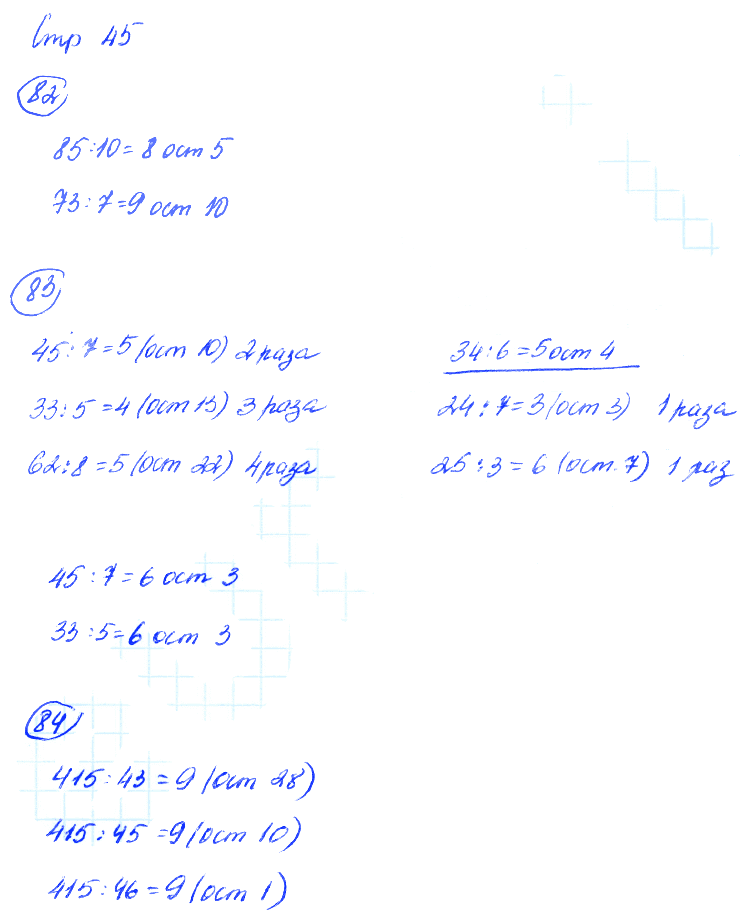 Стр 45
82
85:10=8 ост 5
73:7=9 ост 10
83
45:7=5 (ост 10) 2 раза
33:5=4 (ост 13) 3 раза
62:8=5 (ост 22) 4 раза
34:6=5 ост 4
24:7=3 (ост 3) 1 раза
25:3=6 (ост 7) 1 раз
45:7=6 ост 3
33:5=6 ост 3
84
415:43=9 (ост 28)
415:45=9 (ост 10)
415:46=9 (ост 1)